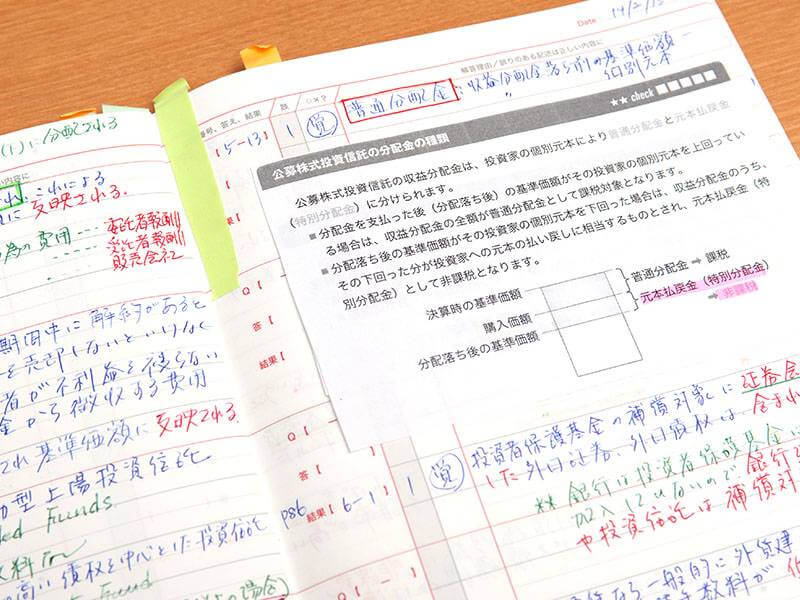 (1)に分配される
これによる
に反映される.
為の費用
委託者報酬
受託者報酬
販売会社
期間中に解約があると
を売却しないといけなく
者が不利益を被らない
金から徴収する費用
され基準価額に反映される.
型上場投資信託
Funds
高い債券を中心とした投資信託
Fund
Date 19/2/13
解答理由/誤りのある記述は正しい内容に
番号、答え、結果
【5-13】 1 (覚) 普通分配金: 収益分配金落ち前の基準価額－
個別元本
★★ check ■■■■■
公募株式投資信託の分配金の種類
公募株式投資信託の収益分配金は、投資家の個別元本により普通分配金と元本払戻金
（特別分配金）に分けられます。
■ 分配金を支払った後（分配落ち後）の基準価額がその投資家の個別元本を上回ってい
る場合は、収益分配金の全額が普通分配金として課税対象となります。
■ 分配落ち後の基準価額がその投資家の個別元本を下回った場合は、収益分配金のうち、
その下回った分が投資家への元本の払い戻しに相当するものとされ、元本払戻金（特
別分配金）として非課税となります。
決算時の基準価額
購入価額
分配落ち後の基準価額
普通分配金 → 課税
元本払戻金（特別分配金）
→ 非課税
Q【
答【
結果【
Q【
答【
P86 結果【6-1】 1 (覚) 投資者保護基金の補償対象に証券会
した外国証券、外国債券は、含まれ
** 銀行は投資者保護基金に
加入していないので銀行で
や投資信託は補償対
なら一般的に外貨建
手数料が